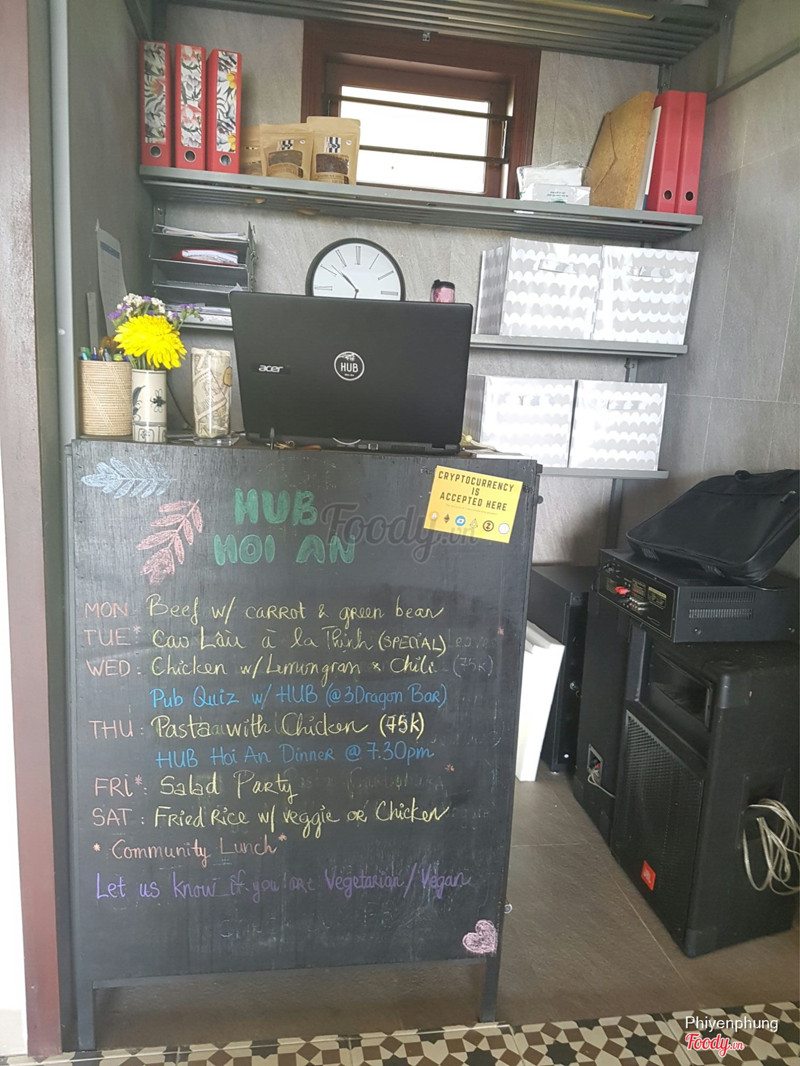 acer
HUB
CRYPTOCURRENCY
IS
ACCEPTED HERE
HUB
HOI AN
Foody.vn
MON: Beef w/ carrot & green bean
TUE*: Cao Lầu à la Thinh (SPECIAL)
WED: Chicken w/ Lemongrass & Chili (75k)
Pub Quiz w/ HUB (@3Dragon Bar)
THU: Pasta with Chicken (75k)
HUB Hoi An Dinner @ 7.30pm
FRI*: Salad Party
SAT: Fried Rice w/ veggie or Chicken
* Community Lunch *
Let us know if you are Vegetarian/Vegan
JBL
Phiyenphung
Foody.vn